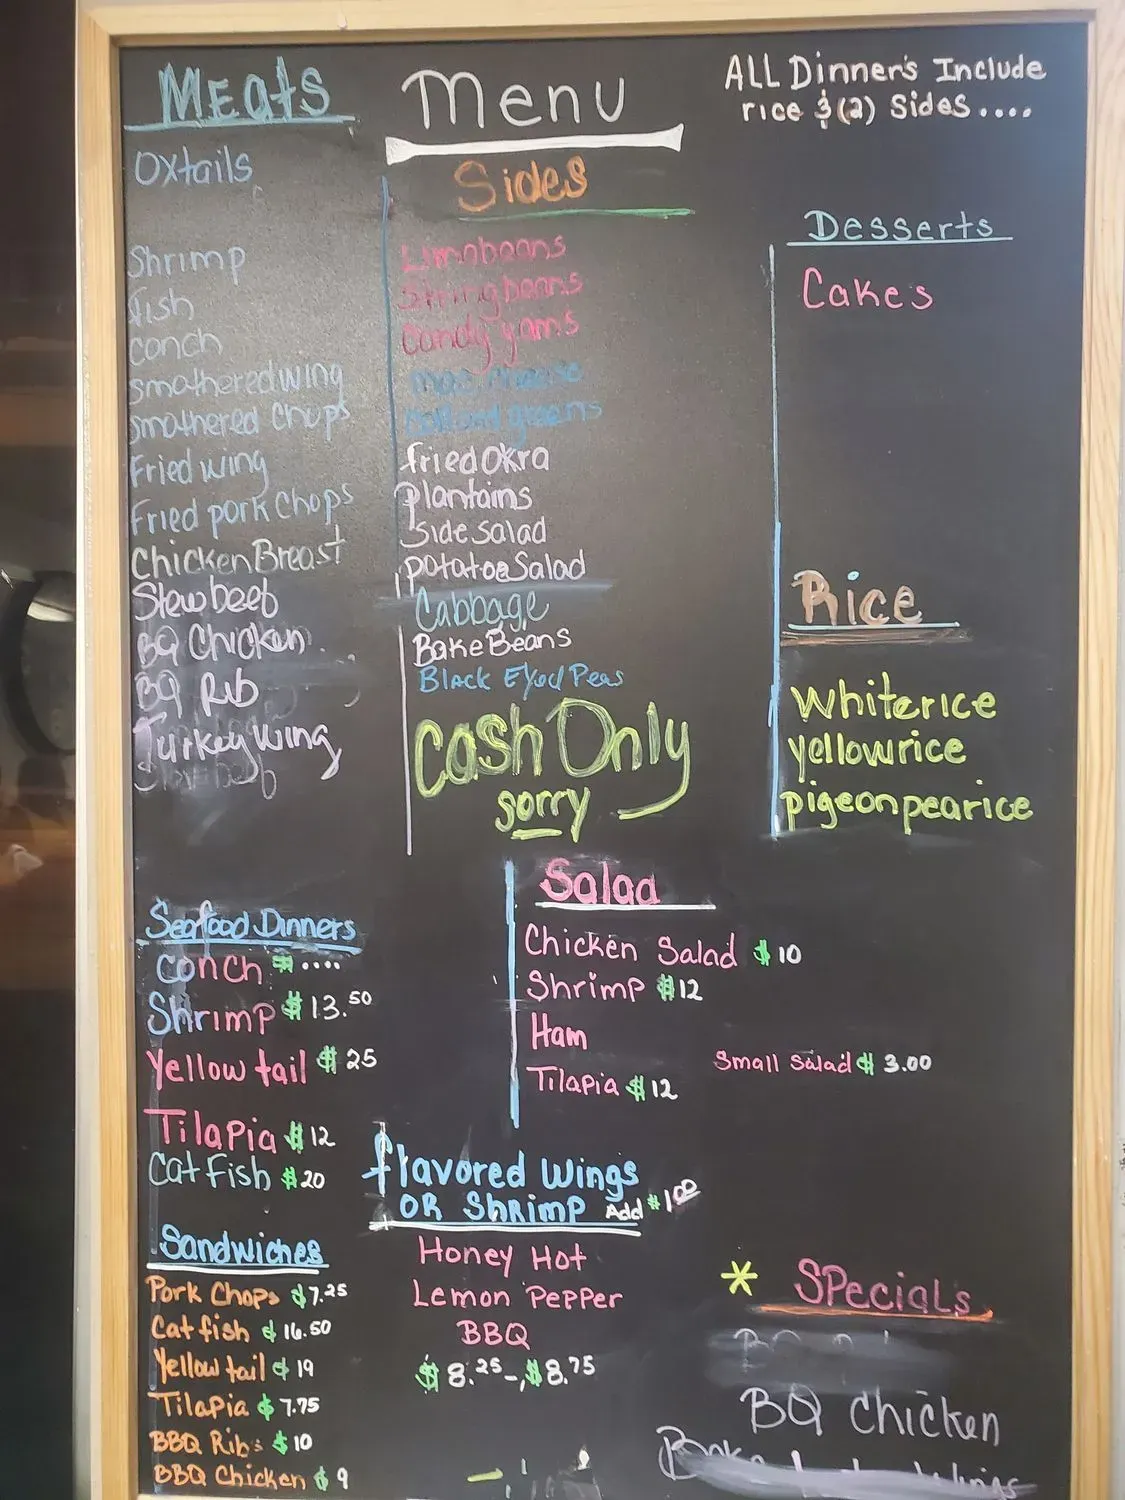 Meats
Oxtails
Shrimp
Fish
Conch
Smothered wing
Smothered Chops
Fried wing
Fried pork Chops
Chicken Breast
Stew beef
BQ Chicken
BQ Rib
Turkey Wing
Menu
Sides
Limabeans
Stringbeans
Candy yams
mac cheese
Collard greens
fried okra
plantains
Side salad
potatoe Salad
Cabbage
Bake Beans
Black Eyed Peas
Cash Only
sorry
ALL Dinner's Include
rice & (2) Sides....
Desserts
Cakes
Rice
White rice
yellow rice
pigeon pea rice
Seafood Dinners
Conch $....
Shrimp $13.50
Yellow tail $25
Tilapia $12
Cat Fish $20
Salad
Chicken Salad $10
Shrimp $12
Ham
Tilapia $12
Small Salad $3.00
Sandwiches
Pork Chops $7.25
Cat fish $16.50
Yellow tail $19
Tilapia $7.75
BBQ Ribs $10
BBQ Chicken $9
flavored Wings
OR Shrimp Add $1.00
Honey Hot
Lemon Pepper
BBQ
$8.25-,$8.75
* SPecials
BQ Chicken